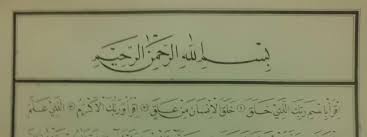 بِسْمِ اللهِ الرَّحْمٰنِ الرَّحِيْمِ
اِقْرَأْ بِاسْمِ رَبِّكَ الَّذِيْ خَلَقَ ۝ خَلَقَ الْاِنْسَانَ مِنْ عَلَقٍ ۝ اِقْرَأْ وَرَبُّكَ الْاَكْرَمُ ۝ الَّذِيْ عَلَّمَ